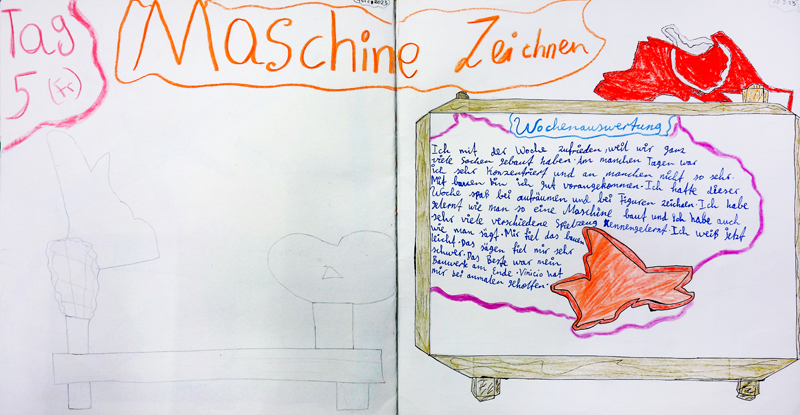 Tag
5 (Fr)
Maschine Zeichnen
Wochenauswertung
Ich mit der Woche zufrieden, weil wir ganz
viele Sachen gebaut haben. Am manchen Tagen war
ich sehr Konzentriert und an manchen nicht so sehr.
Mit bauen bin ich gut vorangekommen. Ich hatte dieser
Woche spaß bei aufräumen und bei Figuren zeichen. Ich habe
gelernt wie man so eine Maschine baut und ich habe auch
sehr viele verschiedene Spielzeug Kennengelernt. Ich weiß jetzt
wie man sägt. Mir fiel das bauen
leicht. Das sägen fiel mir sehr
schwer. Das Beste war mein
Bauwerk am Ende. Vinicio hat
mir bei anmalen geholfen.